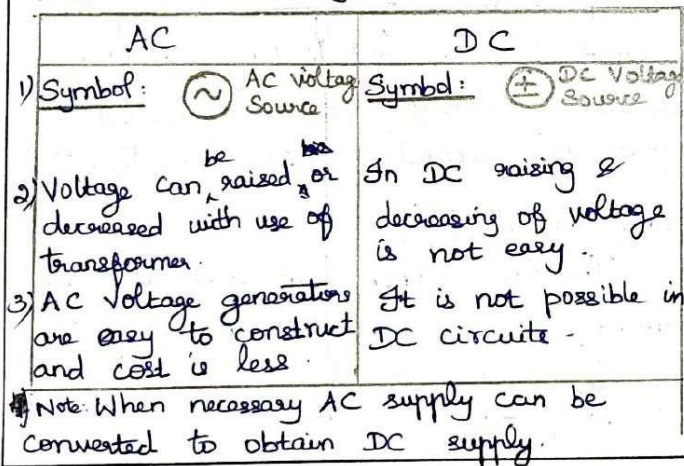 AC
DC
1) Symbol: ~ AC Voltage
Source
Symbol: ± DC Voltag
Source
2) Voltage can be raised or
decreased with use of
transformer.
In DC raising &
decreasing of voltage
is not easy.
3) AC Voltage generators
are easy to construct
and cost is less.
It is not possible in
DC circuits -
Note: When necessary AC supply can be
converted to obtain DC supply.